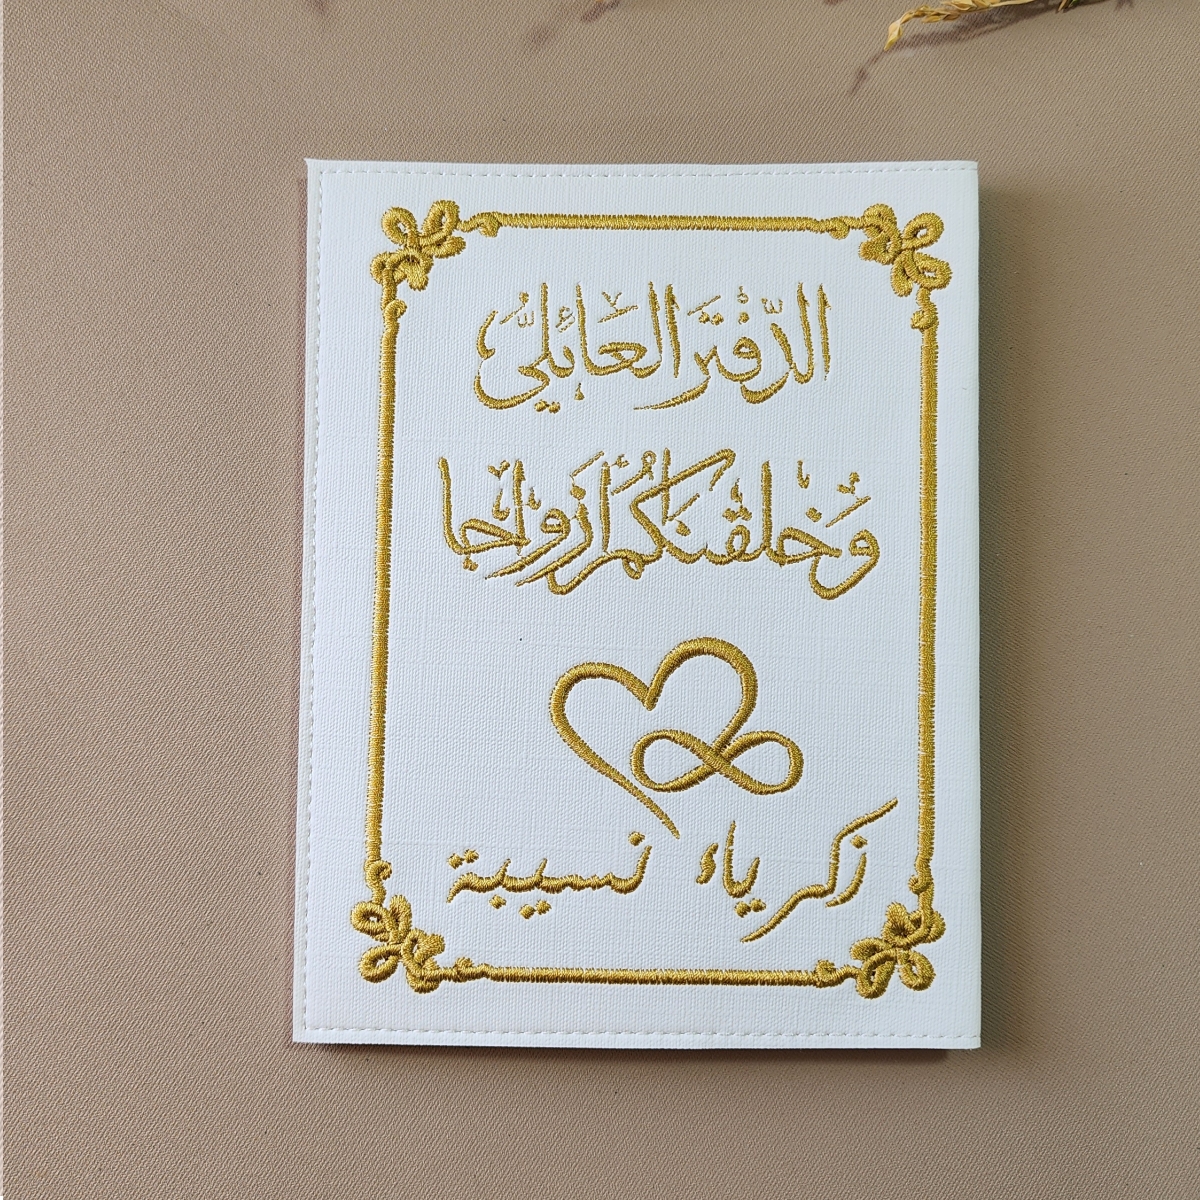 الدّفْتَر العَائِليُّ
وَخلقنَاكُم أزواجا
زكرياء نسيبة